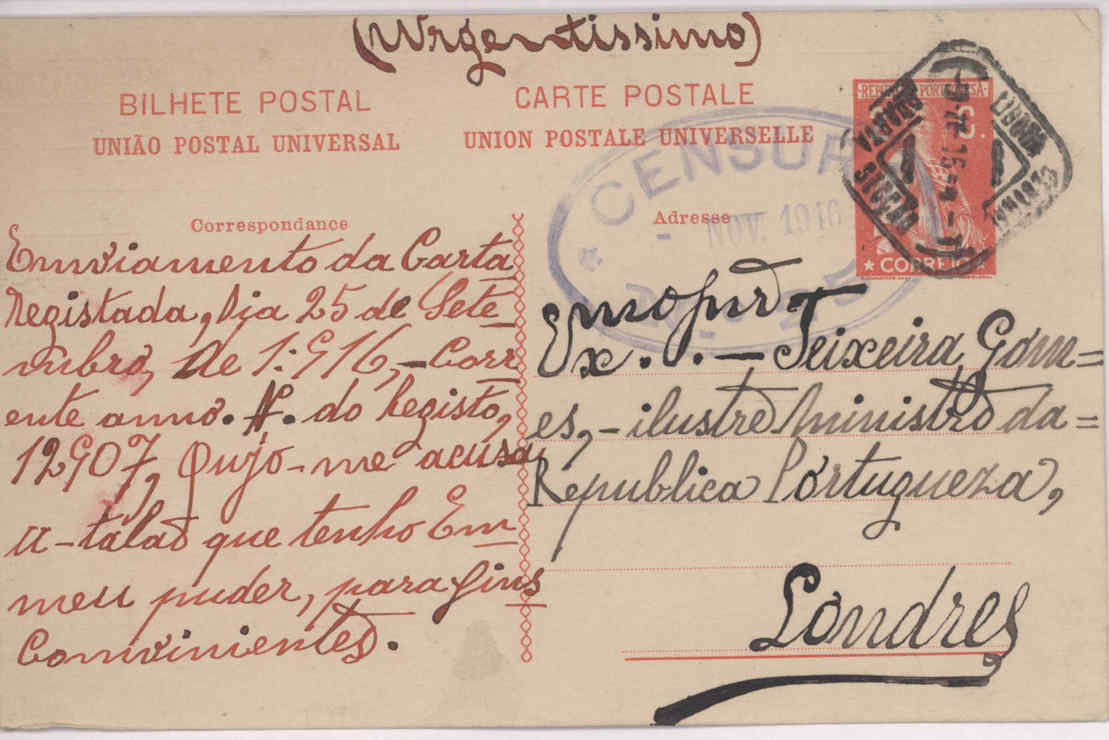 (Urgentissimo)
BILHETE POSTAL
UNIÃO POSTAL UNIVERSAL
CARTE POSTALE
UNION POSTALE UNIVERSELLE
REPUBLICA PORTUGUESA
C.
★ CORREIO
CENSURA
NOV. 1916
LISBOA
QUARTA
SECÇÃO
Correspondance
Emviamento da Carta
Registada, Dia 25 de Sete-
mbro, de 1:916, - Corr
ente anno. N. do Registo,
12907, Qujo-me acusa
u-talaõ que tenho Em
meu puder, para fins
Comvinientes.
Adresse
Ex. - Teixeira Gom=
es, - ilustre Ministro da=
Republica Portugueza,
Londres